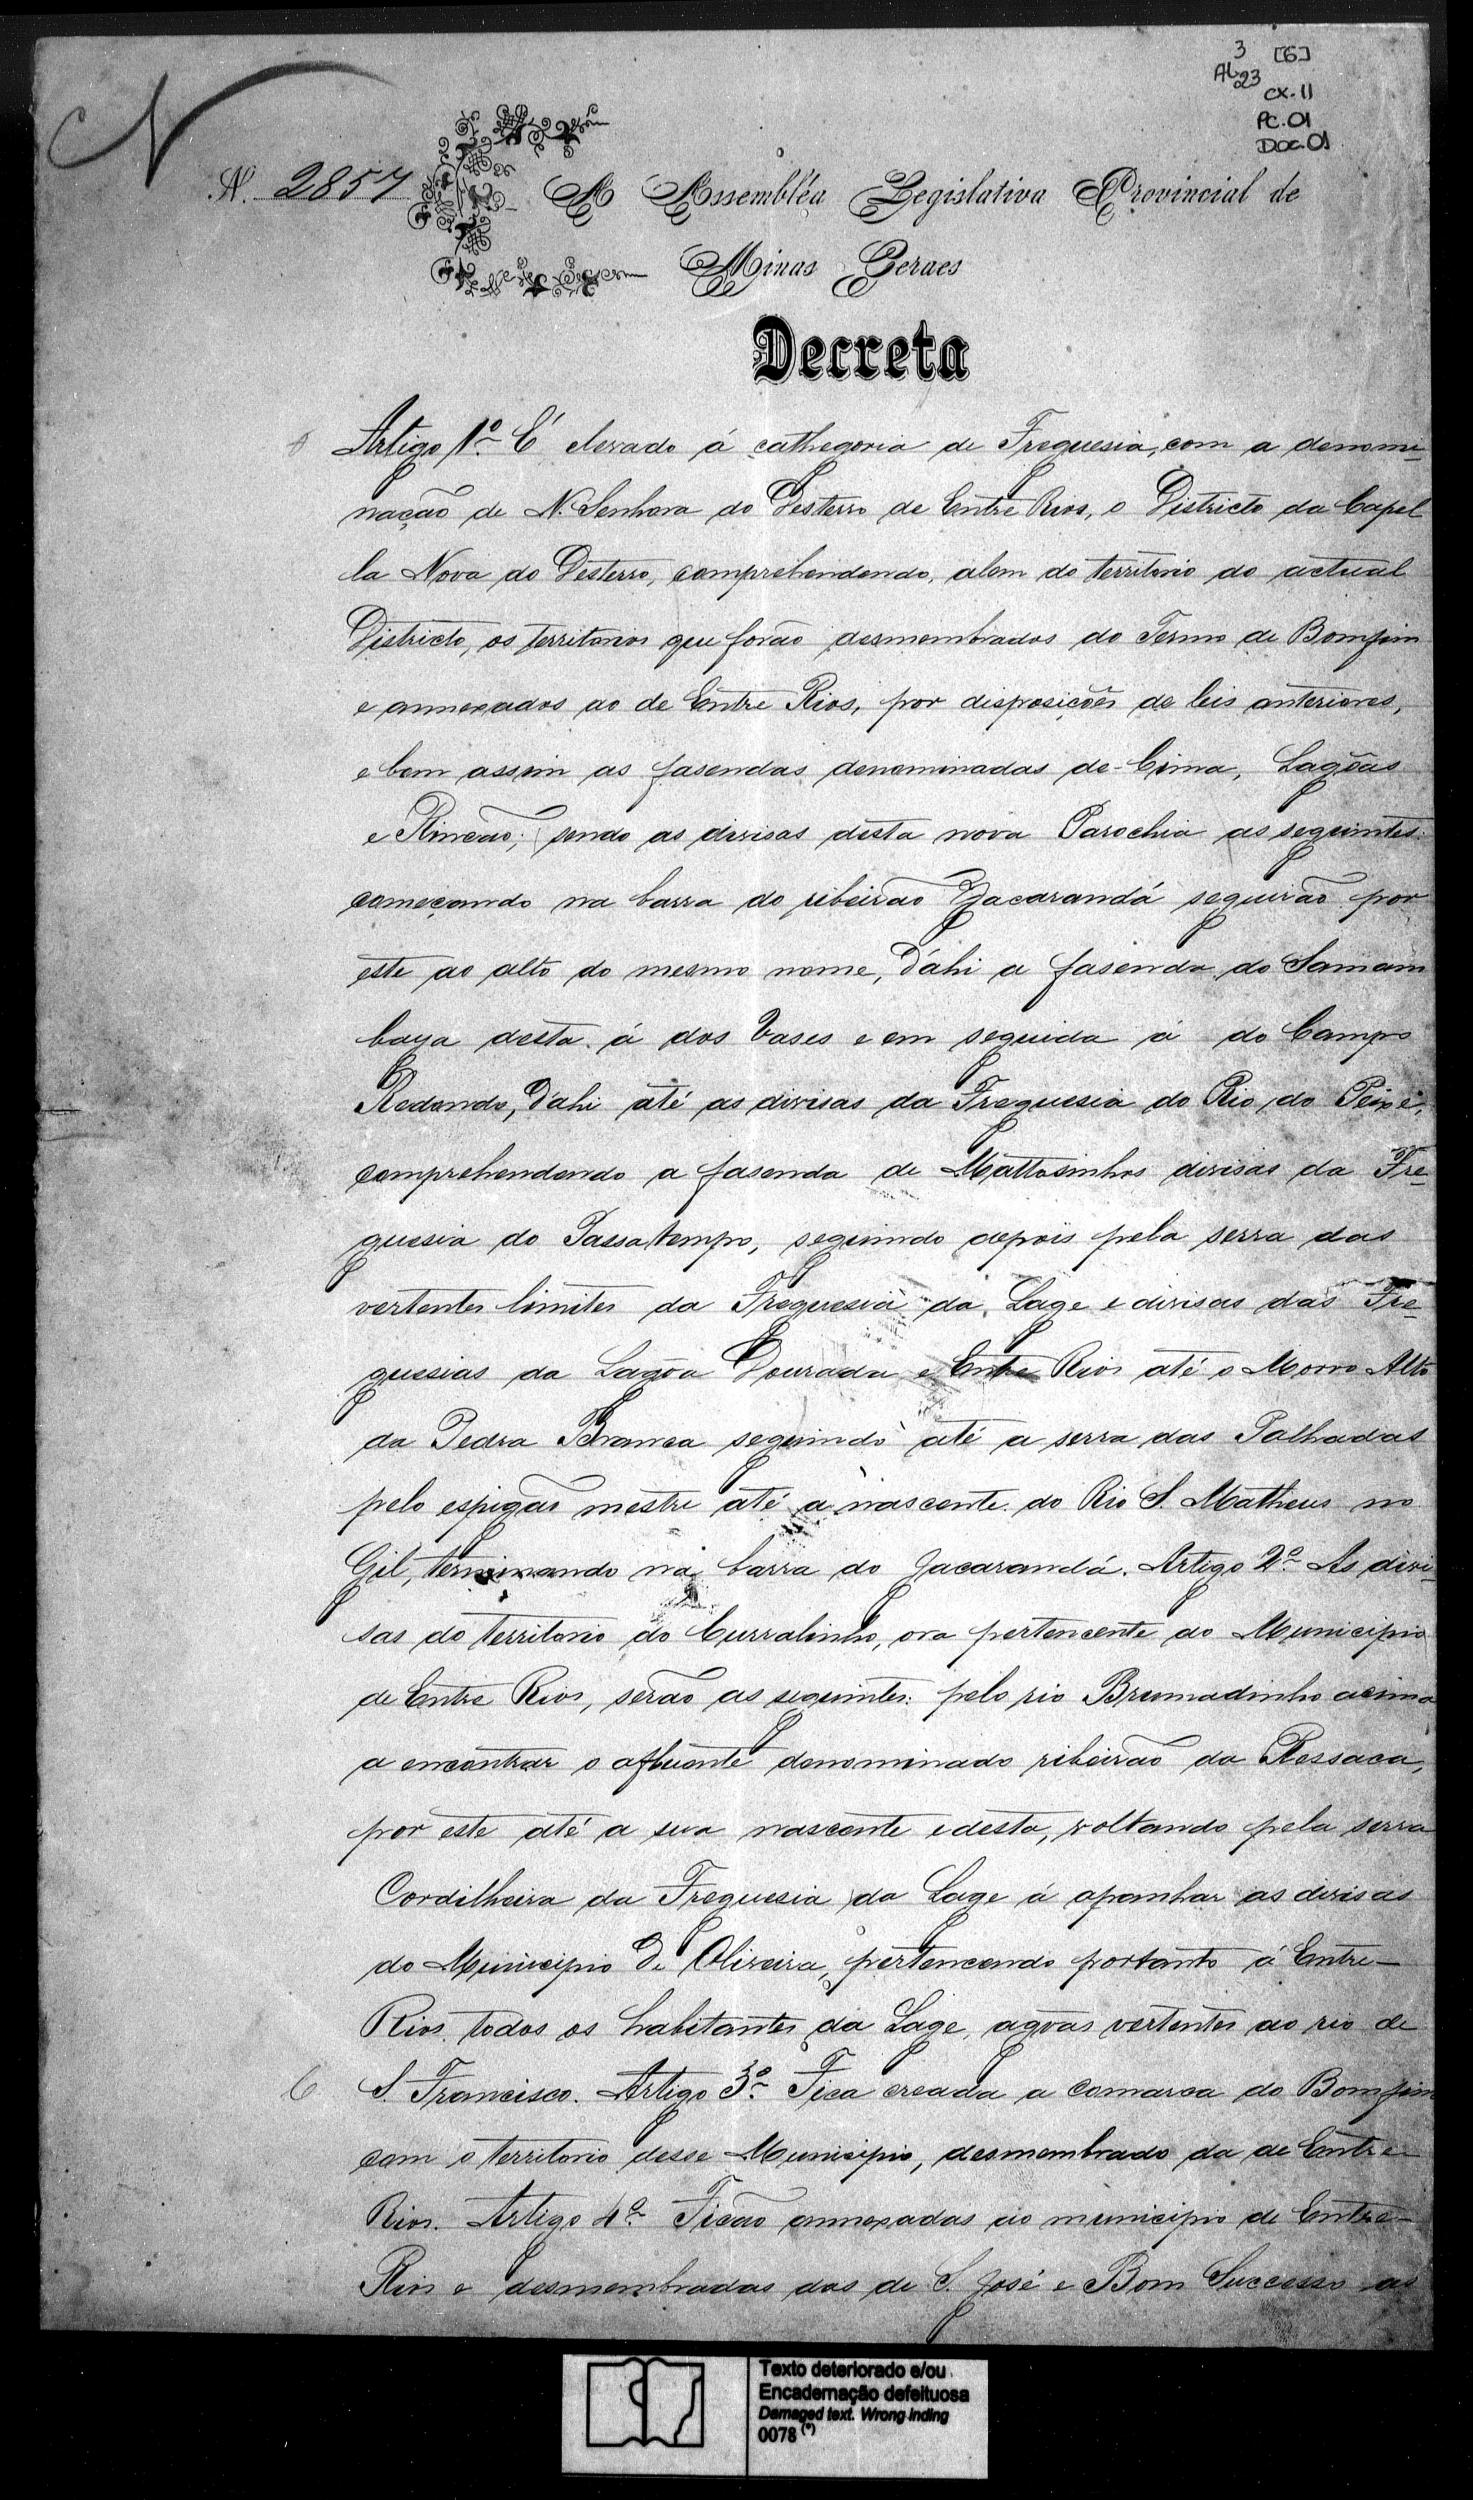 3 [6]
AL 23
CX. 11
PC. 01
DOC. 01
N. 2857
A Assembléa Legislativa Provincial de
Minas Geraes
Decreta
Artigo 1º É elevado á cathegoria de Freguesia, com a denomi-
nação de N. Senhora do Desterro de Entre Rios, o Districto da Capel
la Nova do Desterro, comprehendendo, alem do territorio do actual
Districto, os territorios que forão desmembrados do Termo de Bomfim
e annexados ao de Entre Rios, por disposições de leis anteriores,
e bem assim as fasendas denominadas de Cima, Lagôas
e Rincão; sendo as divisas desta nova Parochia as seguintes:
começando na barra do ribeirão Jacarandá seguirão por
este ao alto do mesmo nome, d'ahi a fasenda do Samam
baya desta á dos Vases e em seguida á do Campo
Redondo, d'ahi até as divisas da Freguesia do Rio do Peixe,
comprehendendo a fasenda de Mattosinhos divisas da Fre-
guesia do Passatempo, seguindo depois pela serra das
vertentes limites da Freguesia da Lage e divisas das Fre-
guesias da Lagôa Dourada e Entre Rios até o Morro Alto
da Pedra Branca seguindo até a serra das Palhadas
pelo espigão mestre até a nascente do Rio S. Matheus no
Gil, terminando na barra do Jacarandá. Artigo 2º As divi-
sas do territorio do Curralinho, ora pertencente ao Municipio
de Entre Rios, serão as seguintes: pelo rio Brumadinho acima
a encontrar o affluente denominado ribeirão da Ressaca,
por este até a sua nascente e desta, voltando pela serra
Cordilheira da Freguesia da Lage á apanhar as divisas
do Municipio de Oliveira, pertencendo portanto á Entre-
Rios todos os habitantes da Lage, agoas vertentes ao rio de
S. Francisco. Artigo 3º Fica creada a comarca do Bomfim
com o territorio desse Municipio, desmembrado da de Entre
Rios. Artigo 4º Ficão annexadas ao municipio de Entre-
Rios e desmembradas dos de S. José e Bom Successo as
Texto deteriorado e/ou
Encadernação defeituosa
Damaged text. Wrong inding
0078 (*)